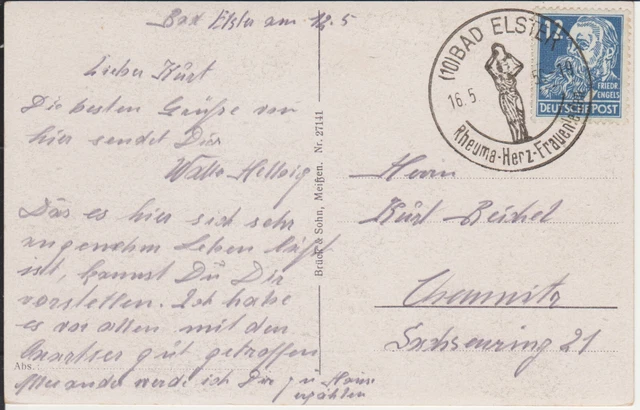 Bad Elster am 12.5
Lieber Kurt
Die besten Grüße von
hier sendet Dir
Walter Hellvig
Das es hier sich sehr
angenehm Leben läßt
ist, kannst Du Dir
vorstellen. Ich habe
es vor allen mit den
gut getroffen
werde ich Dir zu Hause
erzählen
Abs.
Brück & Sohn, Meißen. Nr. 27141
(10) BAD ELSTER
16.5
Rheuma-Herz-Frauen
12
FRIEDR.
ENGELS
DEUTSCHE POST
Herrn
Kurt Reichel
Chemnitz
Sachsenring 21